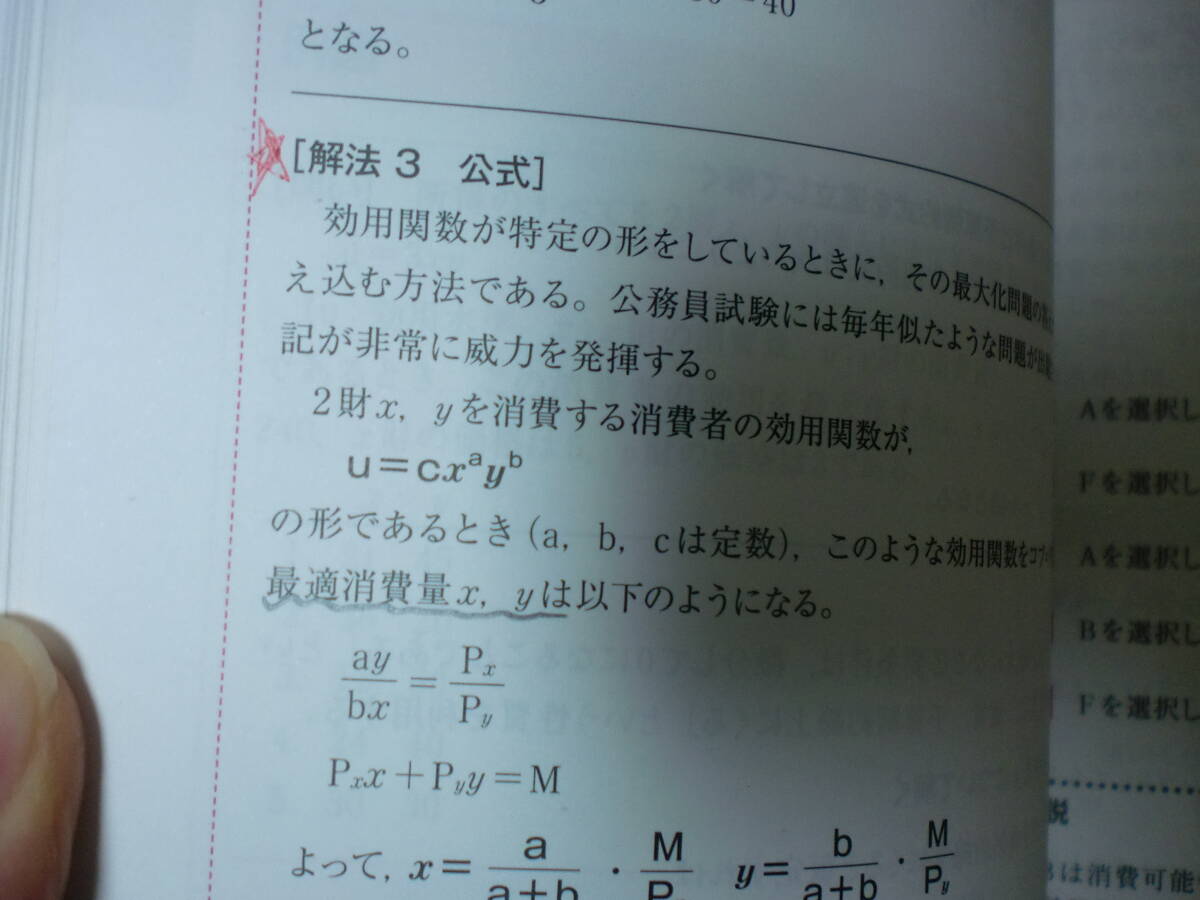 40
となる。
[解法 3 公式]
効用関数が特定の形をしているときに，その最大化問題の
え込む方法である。公務員試験には毎年似たような問題が
記が非常に威力を発揮する。
2財x，yを消費する消費者の効用関数が，
u＝cxᵃyᵇ
の形であるとき（a，b，cは定数），このような効用関数をコブ
最適消費量x，yは以下のようになる。
ay/bx = Px/Py
Pxx＋Pyy＝M
よって，x＝a/a+b・M/P y＝b/a+b・M/Py
Aを選択し
Fを選択し
Aを選択し
Bを選択し
Fを選択し
説
は消費可能